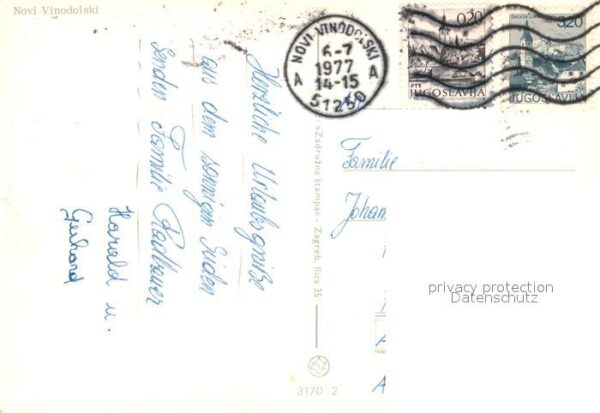 Novi Vinodolski
NOVI VINODOLSKI
6-7
1977
14-15
A A
51250
0.20
PTT JUGOSLAVIJA
3.20
JUGOSLAVIJA
Herzliche Urlaubsgrüße
aus dem sonnigen Süden
senden Familie Radlbauer
Harald u.
Gerhard
»Zadružna štampa« - Zagreb, Ilica 35
3170 2
Familie
Johan
A
A
privacy protection
Datenschutz